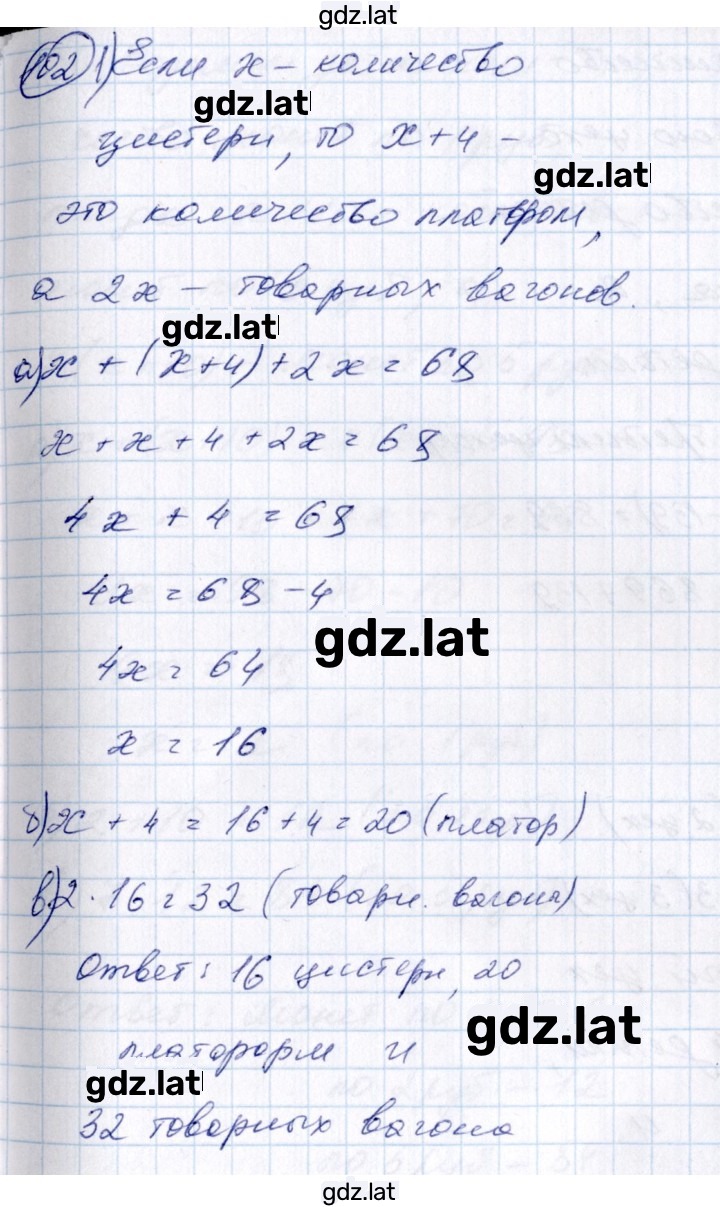 gdz.lat
102 1) Если x – количество
gdz.lat
цистерн, то x + 4 –
gdz.lat
это количество платформ,
а 2x – товарных вагонов.
gdz.lat
а) x + (x + 4) + 2x = 68
x + x + 4 + 2x = 68
4x + 4 = 68
4x = 68 – 4
gdz.lat
4x = 64
x = 16
б) x + 4 = 16 + 4 = 20 (платфор)
в) 2 · 16 = 32 (товарн. вагона)
Ответ: 16 цистерн, 20
gdz.lat
платформ и
gdz.lat
32 товарных вагона
gdz.lat